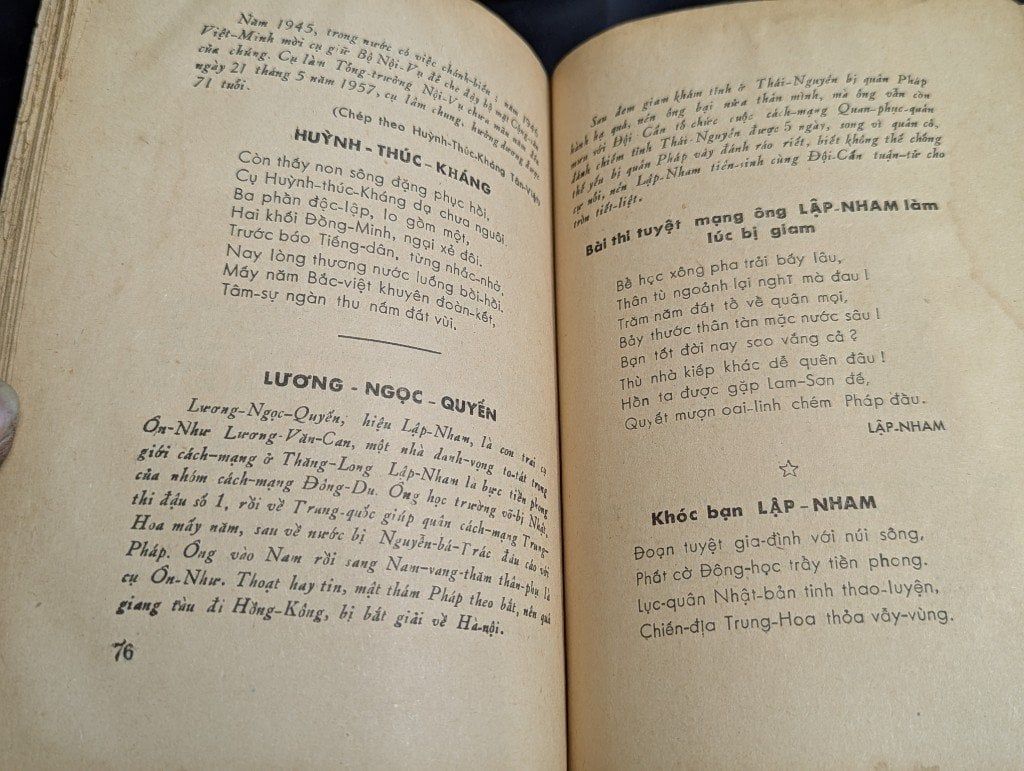 Năm 1945, trong nước có việc chánh-biến; năm 1946
Việt-Minh mời cụ giữ Bộ Nội-Vụ để che đậy bộ mặt Cộng-sản
của chúng. Cụ làm Tổng-trưởng Nội-Vụ chưa mãn năm, đến
ngày 21 tháng 5 năm 1957, cụ lâm chung, hưởng dương được
71 tuổi.
(Chép theo Huỳnh-Thúc-Kháng Tân-Việt)
HUỲNH - THÚC - KHÁNG
Còn thấy non sông đặng phục hồi.
Cụ Huỳnh-thúc-Kháng dạ chưa nguôi.
Ba phần độc-lập, lo gồm một,
Hai khối Đồng-Minh, ngại xẻ đôi.
Trước báo Tiếng-dân, từng nhắc-nhở,
Nay lòng thương nước luống bồi-hồi.
Mấy năm Bắc-việt khuyên đoàn-kết,
Tâm-sự ngàn thu nấm đất vùi.
LƯƠNG - NGỌC - QUYẾN
Lương-Ngọc-Quyến, hiệu Lập-Nham, là con trai cụ
Ôn-Như Lương-Văn-Can, một nhà danh-vọng to-tát trong
giới cách-mạng ở Thăng-Long Lập-Nham là bực tiền phong
của nhóm cách-mạng Đông-Du. Ông học trường võ-bị Nhật,
thi đậu số 1, rồi về Trung-quốc giúp quân cách-mạng Trung-
Hoa mấy năm, sau về nước bị Nguyễn-bá-Trác đầu cáo với
Pháp. Ông vào Nam rồi sang Nam-vang-thăm thân-phụ là
cụ Ôn-Như. Thoạt hay tin, mật thám Pháp theo bắt, nên quá
giang tàu đi Hồng-Kông, bị bắt giải về Hà-nội.
76
Sau đem giam khám tỉnh ở Thái-Nguyên bị quân Pháp
hành hạ quá, nên ông bại nửa thân mình, mà ông vẫn còn
mưu với Đội Cấn tổ chức cuộc cách-mạng Quan-phục-quân
đánh chiếm tỉnh Thái-Nguyên được 5 ngày, song vì quân cô,
thế yếu bị quân Pháp vây đánh ráo riết, biết không thể chống
cự nổi, nên Lập-Nham tiên-sinh cùng Đội-Cấn tuận-tử cho
tròn tiết-liệt.
Bài thi tuyệt mạng ông LẬP-NHAM làm
lúc bị giam
Bể học xông pha trải bấy lâu,
Thân tù ngoảnh lại nghĩ mà đau!
Trăm năm đất tổ về quân mọi,
Bảy thước thân tàn mặc nước sâu!
Bạn tốt đời nay sao vắng cả?
Thù nhà kiếp khác dễ quên đâu!
Hồn ta được gặp Lam-Sơn đế,
Quyết mượn oai-linh chém Pháp đầu.
LẬP-NHAM
Khóc bạn LẬP-NHAM
Đoạn tuyệt gia-đình với núi sông,
Phất cờ Đông-học trầy tiền phong.
Lục-quân Nhật-bản tinh thao-luyện,
Chiến-địa Trung-Hoa thỏa vẫy-vùng.